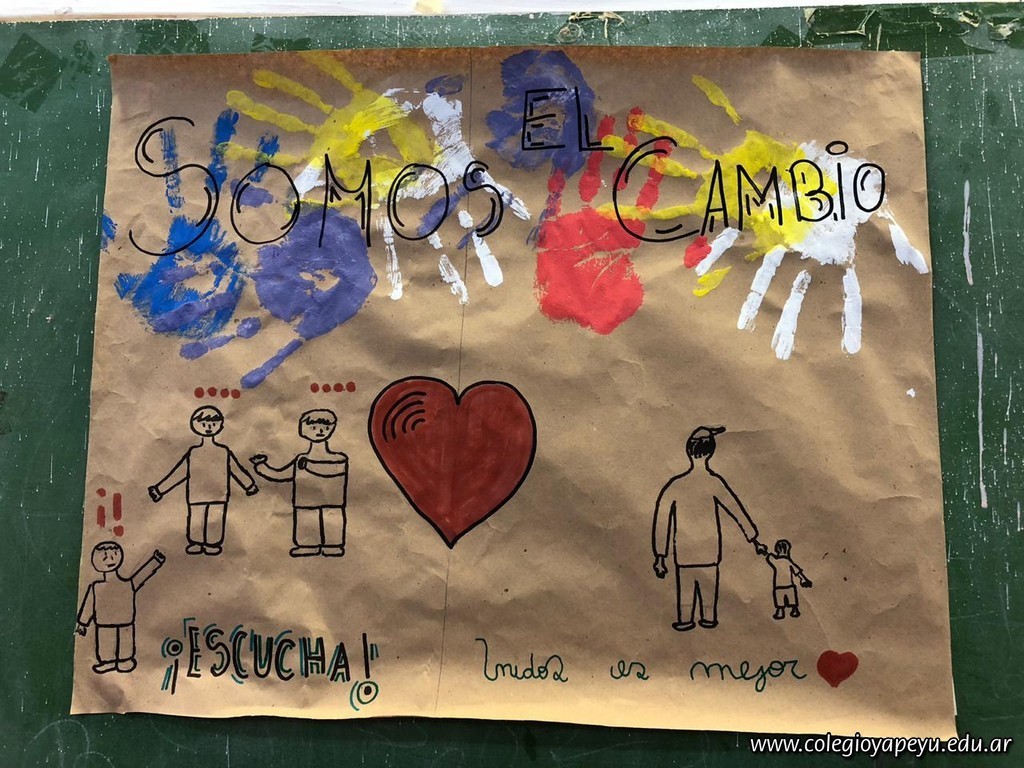 SOMOS EL CAMBIO
¡!
¡ESCUCHA!
Unidos es mejor
www.colegioyapeyu.edu.ar